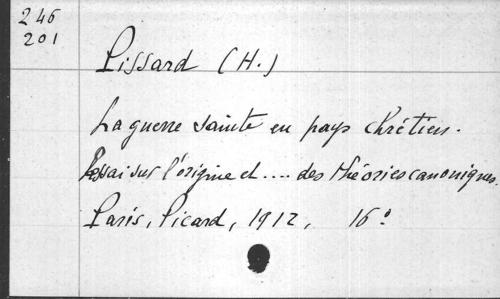 246
201
Pissard (H.)
La guerre sainte en pays chrétien.
Essai sur l'origine et .... des théories canoniques.
Paris, Picard, 1912, 16°